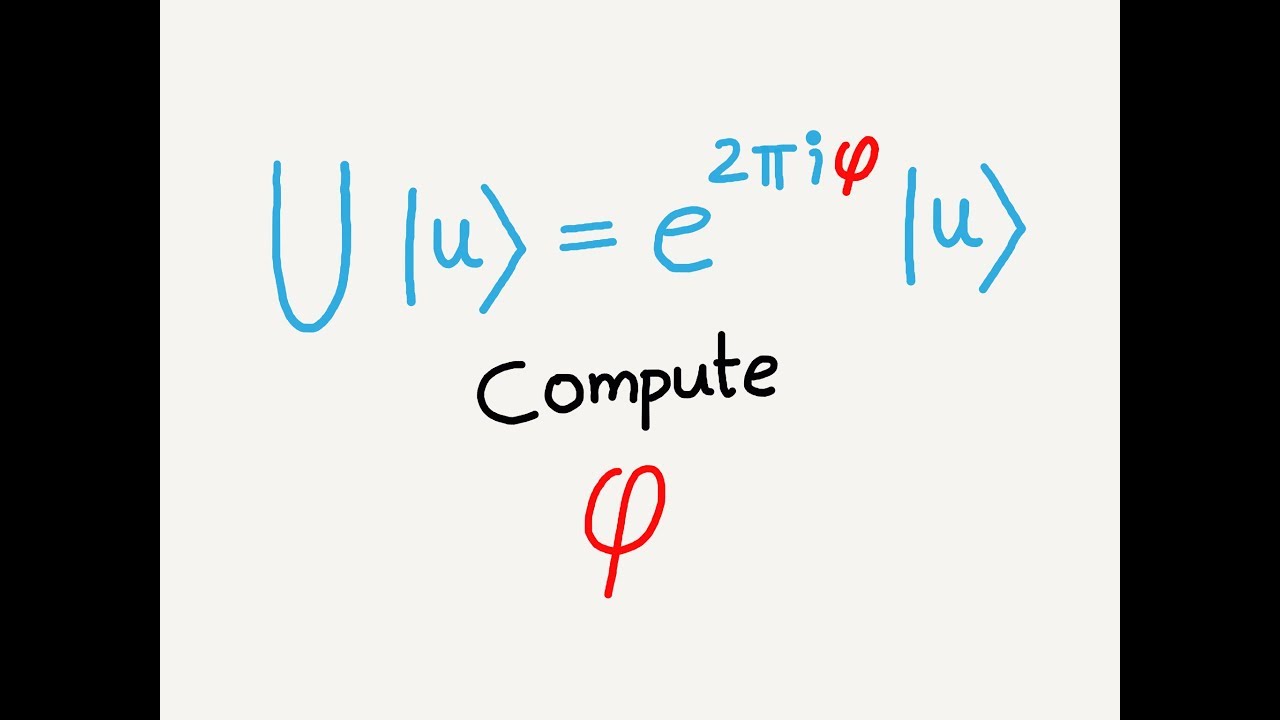 U |u⟩ = e^{2πiφ} |u⟩
Compute
φ